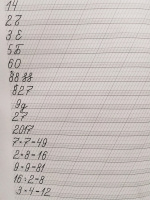 14
27
38
55
60
88 88
827
99
27
2017
7+7=49
2+8=16
9+9=81
16:2=8
3+4=12